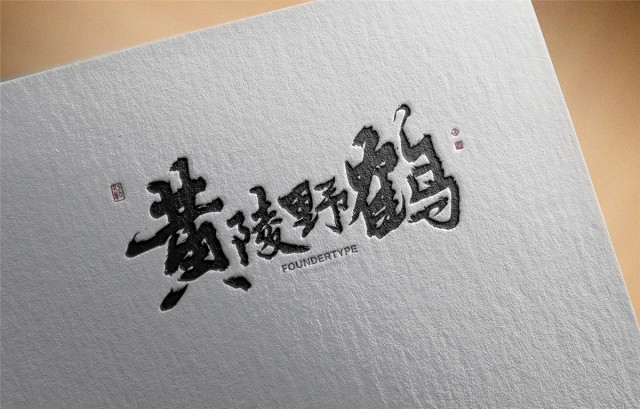 黄陵野鹤
FOUNDERTYPE